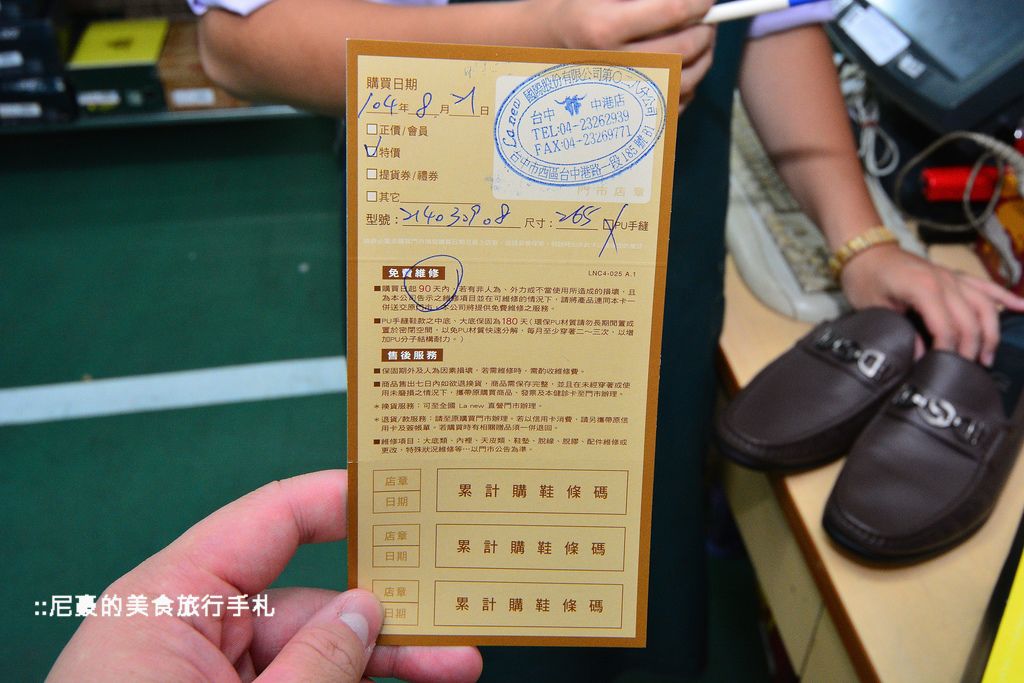 購買日期
104年8月21日
□正價/會員
□特價
□提貨券/禮券
□其它
型號：21403290.8 尺寸：265 □PU手縫
La new 國際股份有限公司第〇二八分公司
台中 中港店
TEL:04-23262939
FAX:04-23269771
台中市西區台中港路一段185號B1
門市店章
免費維修
LNC4-025 A.1
■購買日起90天內，若有非人為、外力或不當使用所造成的損壞，且
為本公司告示之維修項目並在可維修的情況下，請將產品連同本卡一
併送交原門市，本公司將提供免費維修之服務。
■PU手縫鞋款之中底、大底保固為180天(環保PU材質請勿長期閒置或
置於密閉空間，以免PU材質快速分解，每月至少穿著二～三次，以增
加PU分子結構耐力。)
售後服務
■保固期外及人為因素損壞，若需維修時，需酌收維修費。
■商品售出七日內如欲退換貨，商品需保存完整，並且在未經穿著或使
用未磨損之情況下，攜帶原購買商品、發票及本健診卡至門市辦理。
＊換貨服務：可至全國 La new 直營門市辦理。
＊退貨/款服務：請至原購買門市辦理。若以信用卡消費，請另攜帶原信
用卡及簽帳單。若購買時有相關贈品須一併退回。
■維修項目：大底類、內裡、天皮類、鞋墊、脫線、脫膠、配件維修或
更改，特殊狀況維修等…以門市公告為準。
店章
日期
累計購鞋條碼
店章
日期
累計購鞋條碼
店章
日期
累計購鞋條碼
::尼豪的美食旅行手札